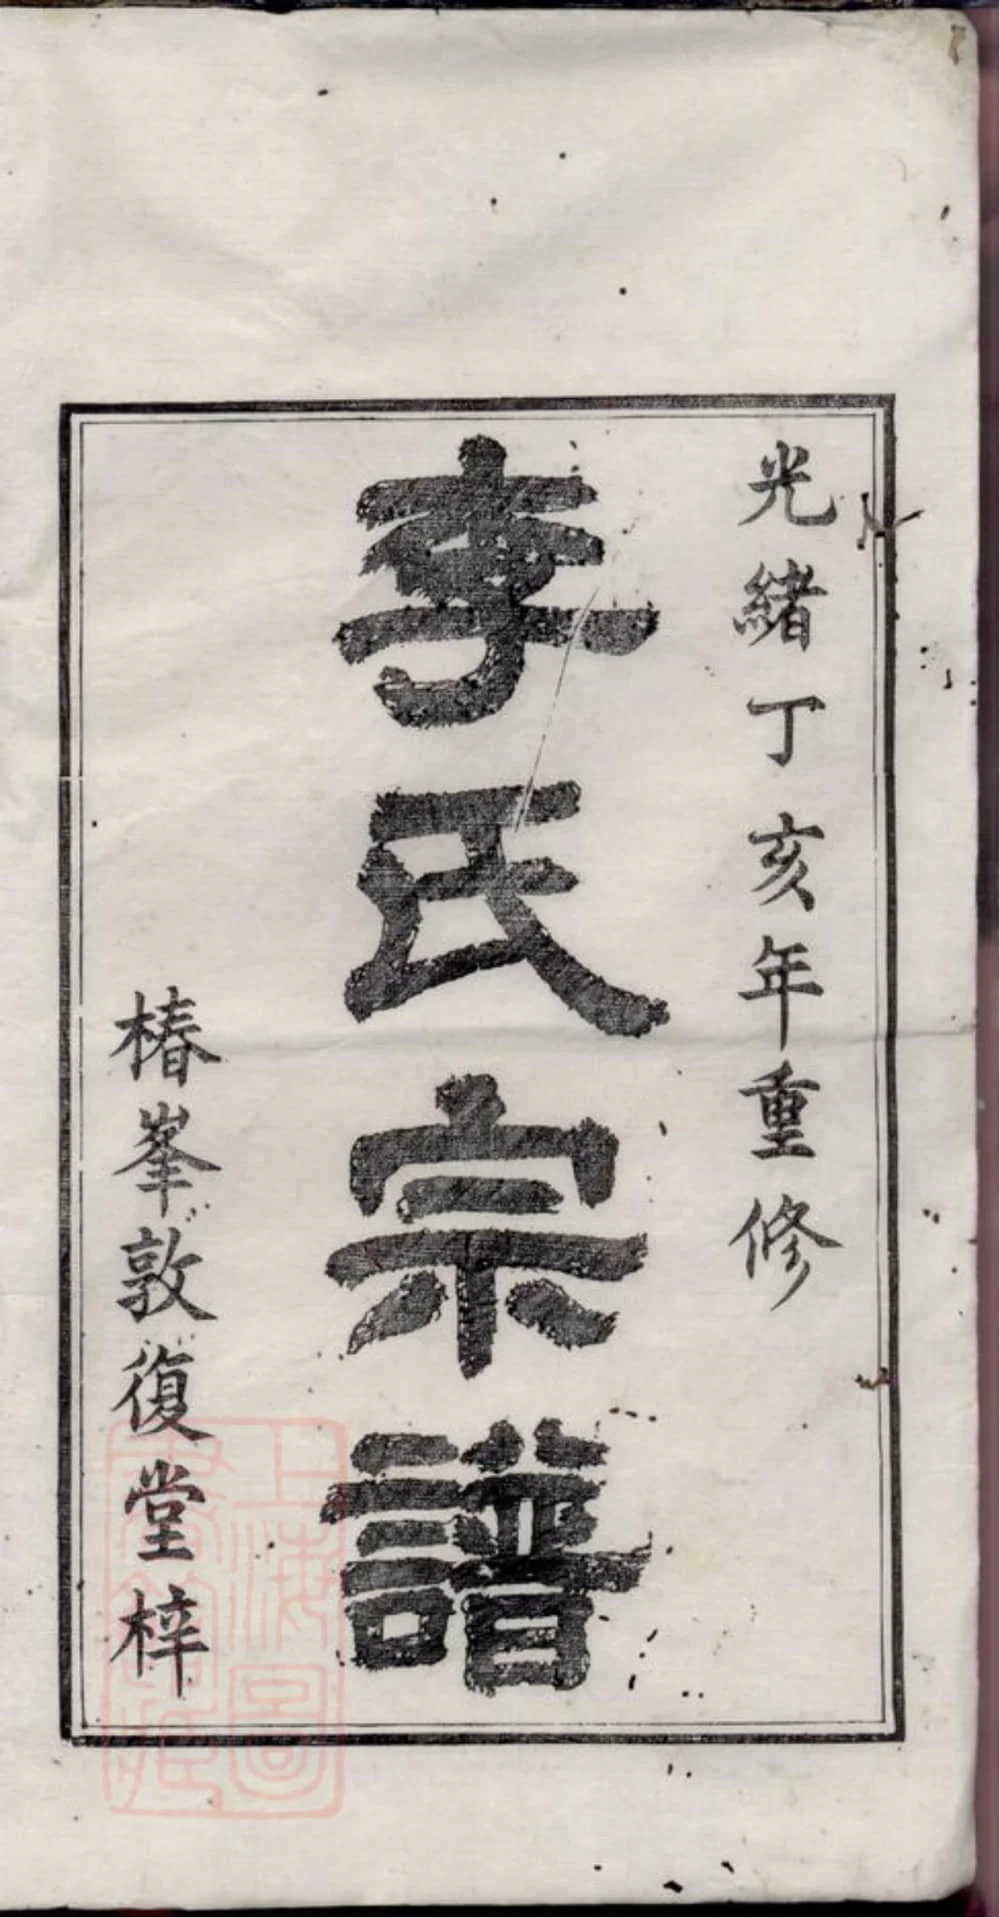 光緒丁亥年重修
李氏宗譜
椿峯敦復堂梓
上海圖
書館藏